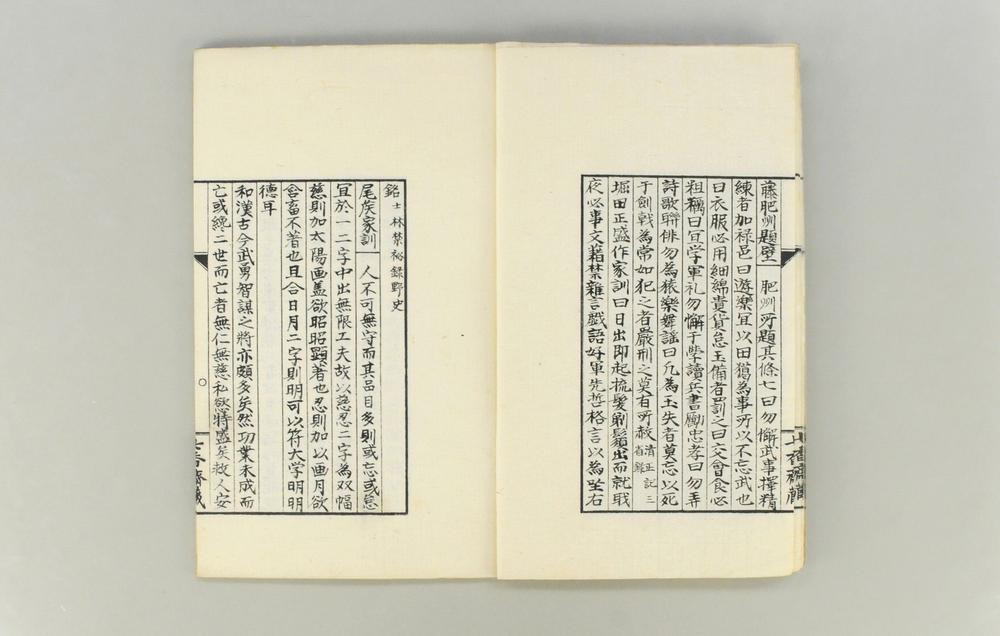 藤肥州題壁 肥州所題其條七曰勿懈武事擇精
練者加禄邑曰遊樂宜以田猎為事所以不忘武也
曰衣服必用細綿貴貨怠玉備者罰之曰交會食必
粗糲曰宜学軍礼勿懈于学讀兵書勵忠孝曰勿弄
詩歌聯俳勿為猿樂舞謡曰凡為士失者莫忘以死
于劍戟為常如犯之者嚴刑之莫有所赦清正記三省録
堀田正盛作家訓曰日出即起梳髮剃鬚出而就職
夜必事文藉禁雜言戲語好軍先哲格言以為坐右
銘士林禁祕録野史
尾族家訓 人不可無守而其品目多則或忘或怠
宜於一二字中出無限工夫故以慈忍二字為双幅
慈則加太陽画蓋欲昭昭顕著也忍則加以画月欲
含畜不著也且合日月二字則明可以符大学明明
德耳
和漢古今武勇智謀之将亦頗多矣然功業未成而
亡或纔二世而亡者無仁無慈私慾特盛矣故人安